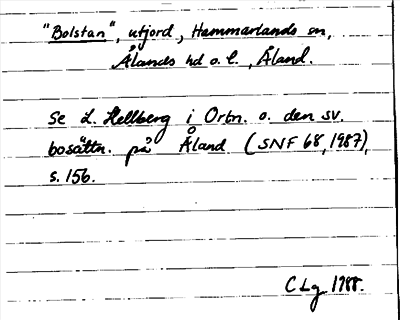 "Bolstan", utjord, Hammarlands sn,
Ålands hd o. l., Åland.
Se L. Hellberg i Ortn. o. den sv.
bosättn. på Åland (SNF 68, 1987),
s. 156.
C Lg 1988.